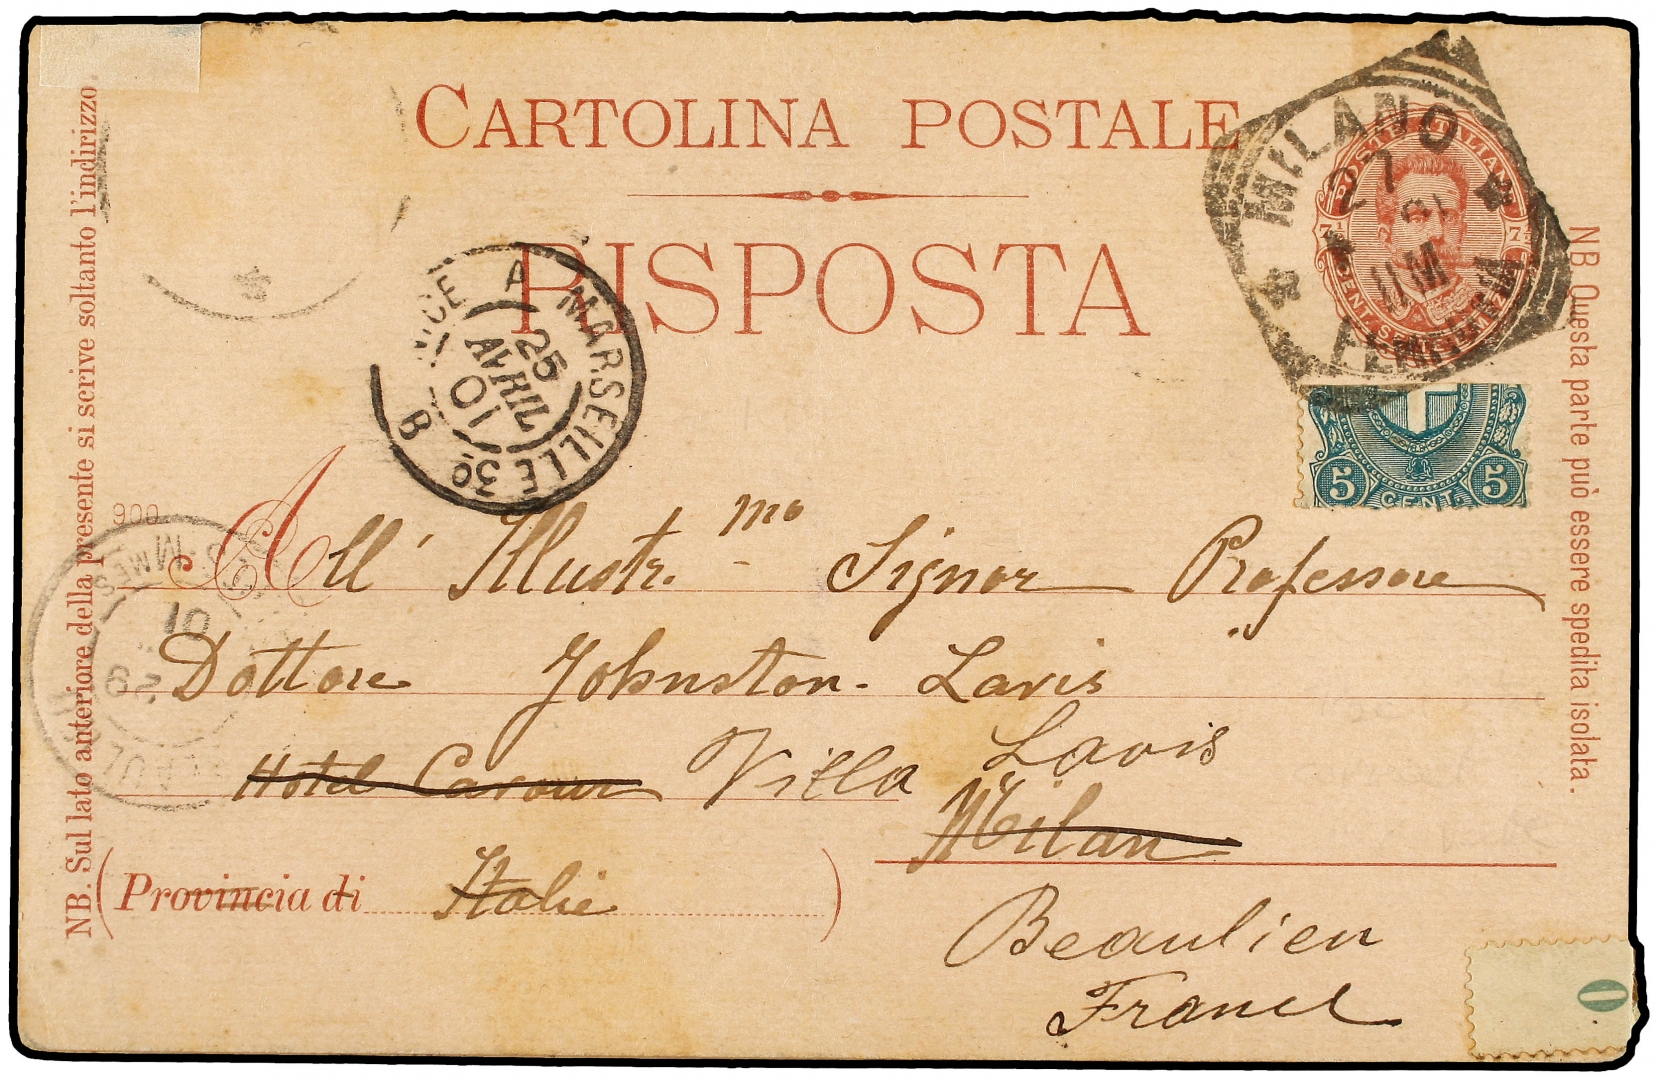 CARTOLINA POSTALE
RISPOSTA
NB. Sul lato anteriore della presente si scrive soltanto l'indirizzo.
NB Questa parte può essere spedita isolata.
MILANO
FERROVIA
POSTE ITALIANE
CENT.
5 CENT. 5
NICE A MARSEILLE 3º
25
AVRIL
01
B
900
All' Illustr.mo Signor Professore
Dottore Johnston-Lavis
Hotel Cavour Villa Lavis
Milan
(Provincia di Italie )
Beaulieu
France
0